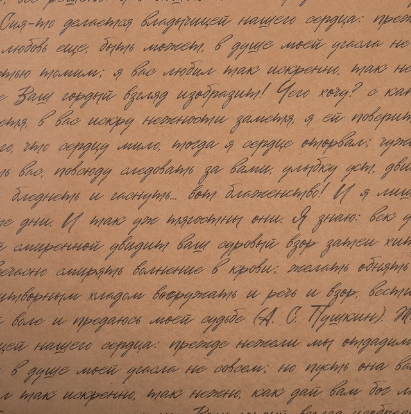 Сия-то делается владычицей нашего сердца: преж
любовь еще, быть может, в душе моей угасла не
тью томим; я вас любил так искренно, так не
Ваш гордый взгляд изобразит! Чего хочу? с как
етя, в вас искру нежности заметя, я ей поверит
го, что сердцу мило, тогда я сердце оторвал; чуж
ть вас, повсюду следовать за вами, улыбку уст, дви
бледнеть и гаснуть... вот блаженство! И я лиш
е дни. И так уж тягостны они. Я знаю: век у
смиренной увидит ваш суровый взор затеи хит
ечасно смирять волнение в крови; желать обнять
итворным хладом вооружать и речь и взор, вести
воле и предаюсь моей судьбе (А. С. Пушкин).
цей нашего сердца: прежде нежели мы отдадим
в душе моей угасла не совсем; но пусть она вас
л так искренно, так нежно, как дай вам бог л